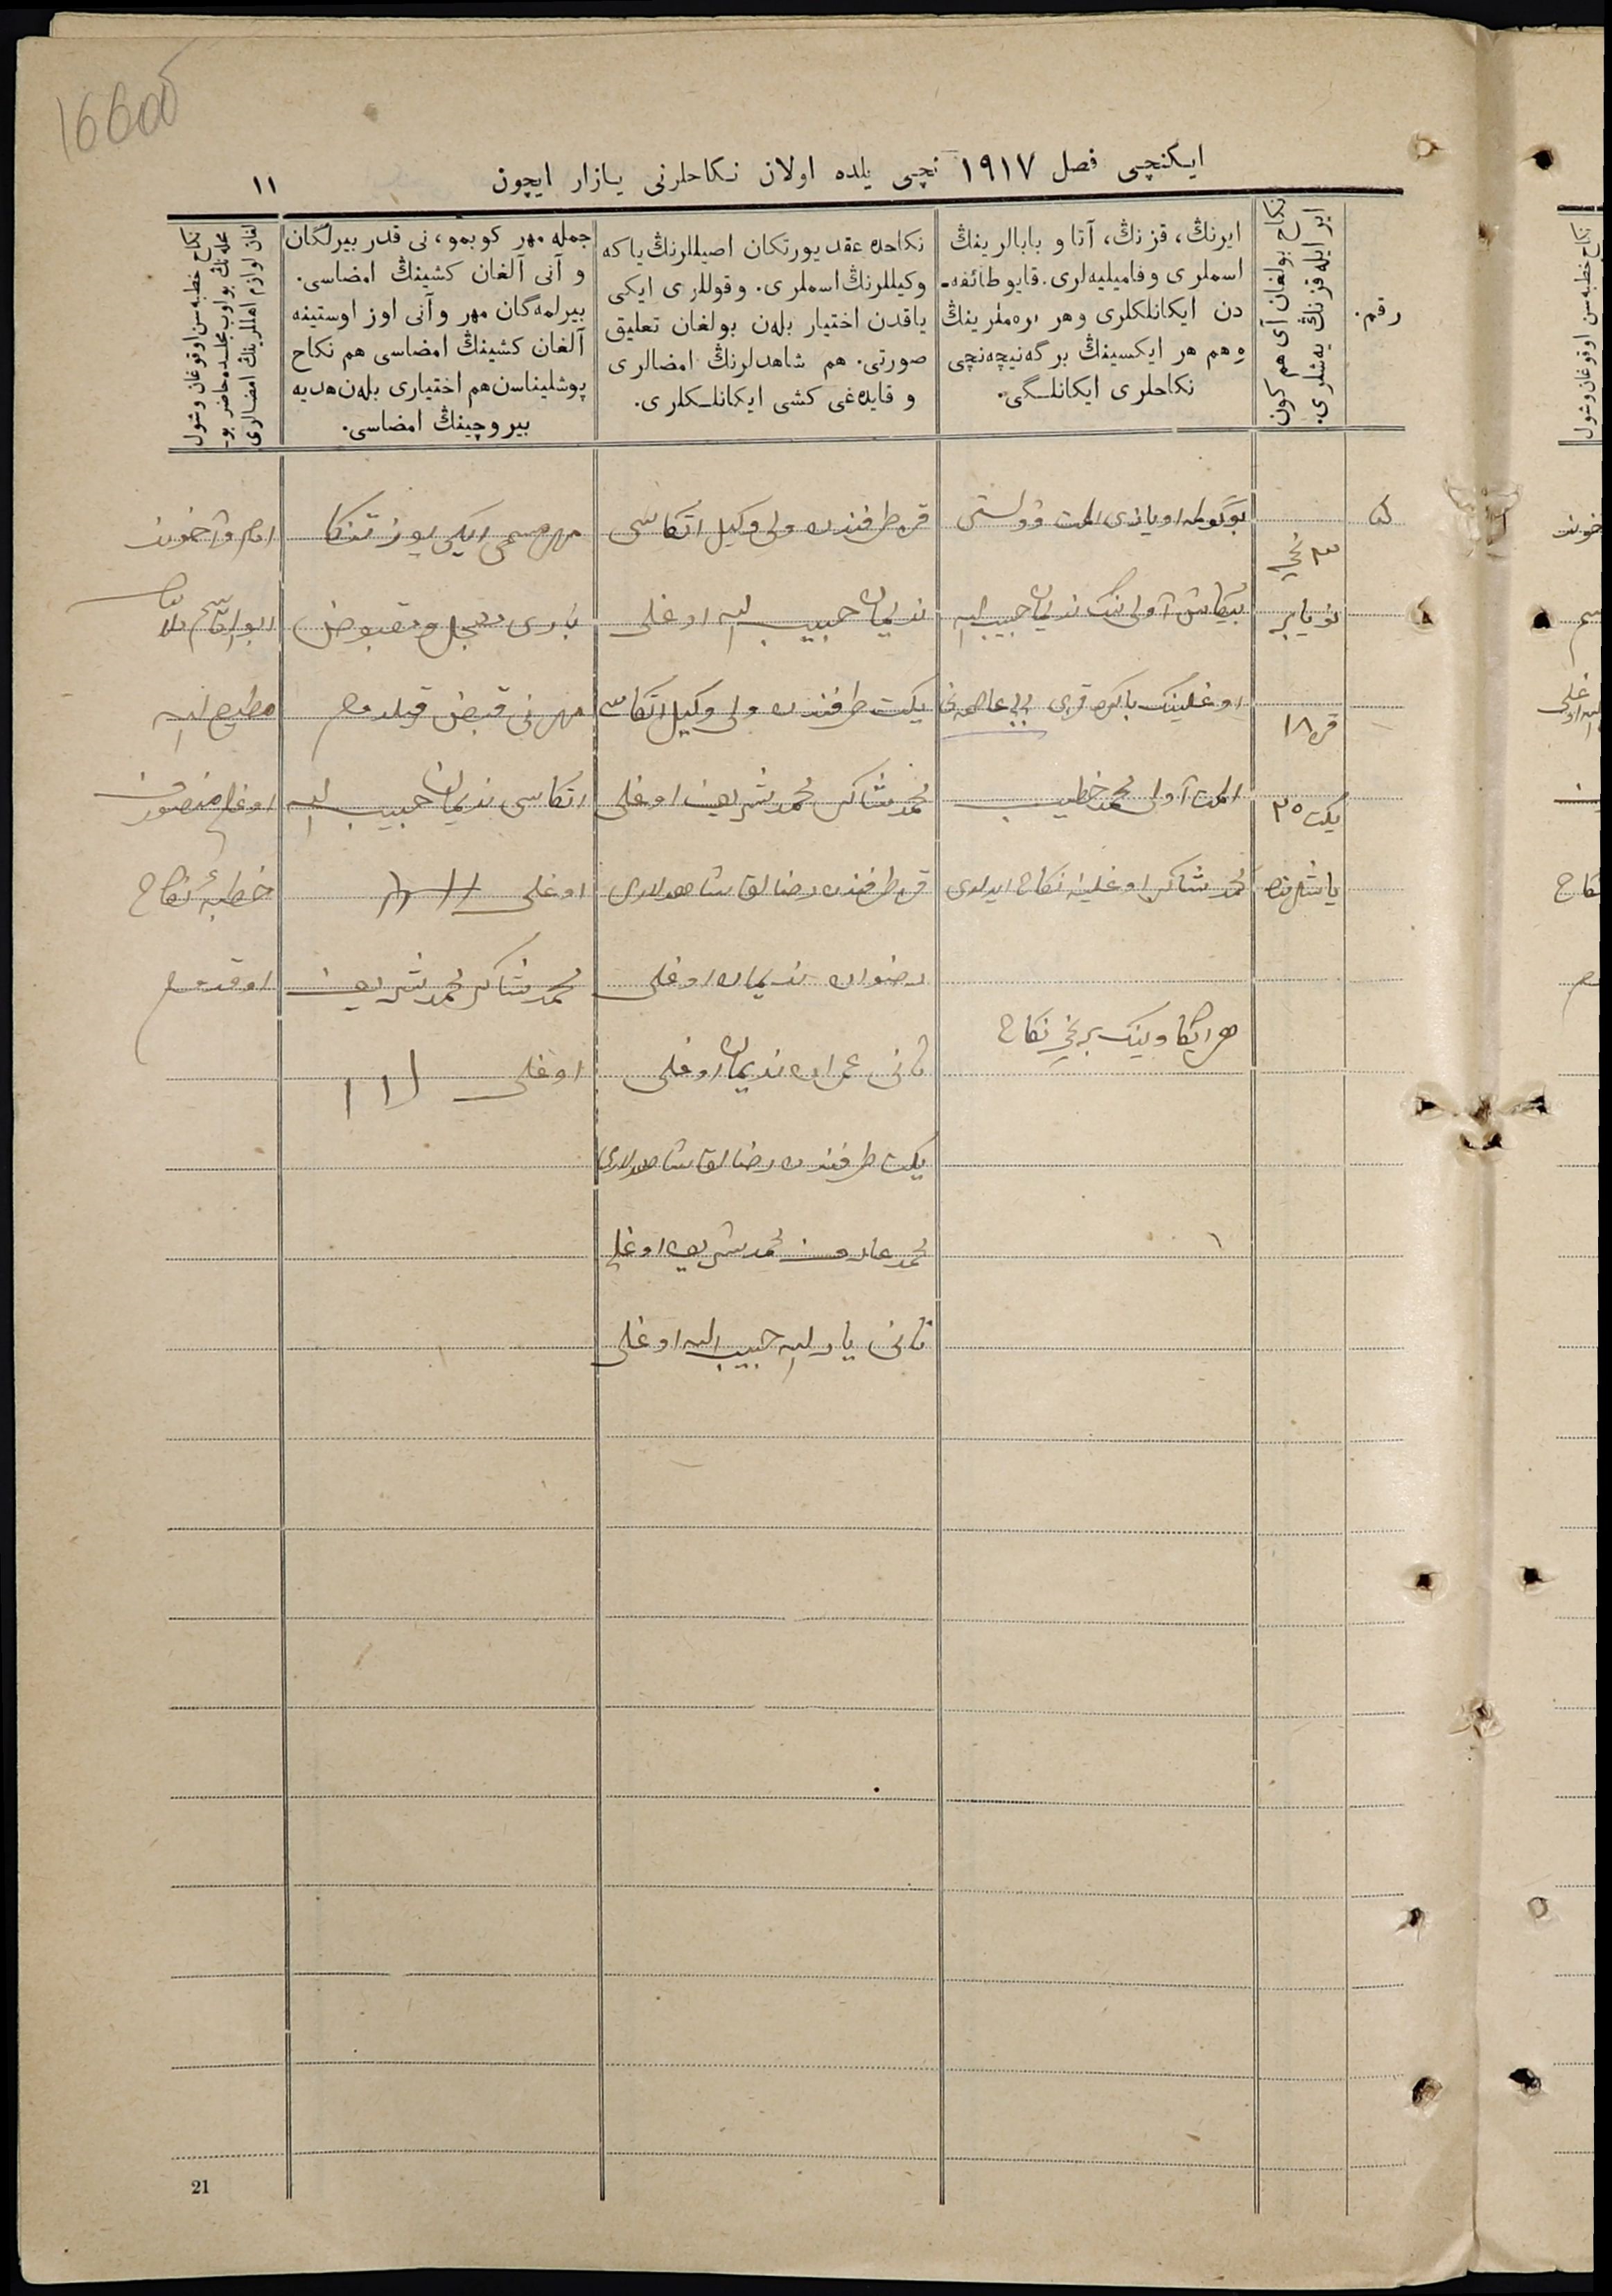 1660об
ایکنچی فصل ۱۹۱۷ نچی یلده اولان نکاحلرنی یازار ایچون
۱۱
رقم.
نکاح بولغان آی هم کون
ایر ایله قزنڭ یه‌شلری.
ایرنڭ، قزنڭ، آتا و بابالرینڭ
اسملری وفامیلیه‌لری. قایو طائفه‌ـ
دن ایکانلکلری وهر
هم هر ایکسینڭ برگه‌نیچه‌نچی
نکاحلری ایکانلـگی.
نکاحده عقد یورتکان اصیللرنڭ یا که
وکیللرنڭ اسملری. و قوللری ایکی
یاقدن اختیار بله‌ن بولغان تعلیق
صورتی. هم شاهدلرنڭ امضالری
و قایده‌غی کشی ایکانلـکلری.
جمله مهر کوبمو، نی قدر بیرلگان
و آنی آلغان کشینڭ امضاسی.
بیرلمه‌گان مهر و آنی اوز اوستینه
آلغان کشینڭ امضاسی هم نکاح
پوشلیناسن هم اختیاری بله‌ن هدیه
بیروچینڭ امضاسی.
نکاح خطبه‌سن اوقوغان وشول
محله‌نڭ بولوب مجلسده حاضر بوـ
لغان لوازم اهللرینڭ امضالری
۵
۳ نچی
نویابر
قز ۱۸
یکت ۲۵
یاشلرنده
بوگولمه اویازی المت وولستی
بیگاش آولی ننک ندیمان حبیب الله
اوغلینک باکره قزی بی بی عاصمه نی
المت آولی محمد خطیب
محمد شاکر اوغلینه نکاح ایدلدی
هر ایکاوینک برنچی نکاح
قز طرفندن ولی وکیل اتکاسی
ندیمان حبیب الله اوغلی
یکت طرفندن ولی وکیل اتکاسی
محمد شاکر محمد شریف اوغلی
قز طرفندن رضالق شاهدلاری
رضوان ندیمان اوغلی
ثانی عمران ندیمان اوغلی
یکت طرفندن رضالق شاهدلاری
محمد عارف محمد شریف اوغلی
ثانی یارالله حبیب الله اوغلی
مهر مسمی ایکی یوز تنکا
باری معجل و مقبوض
مهرنی قبض قیلدم
اتکاسی ندیمان حبیب الله
اوغلی
محمد شاکر محمد شریف
اوغلی
امام و آخوند
ابوالقاسم ملا
مطیع الله
اوغلی منصوروف
خطبهٔ نکاح
اوقدم
21